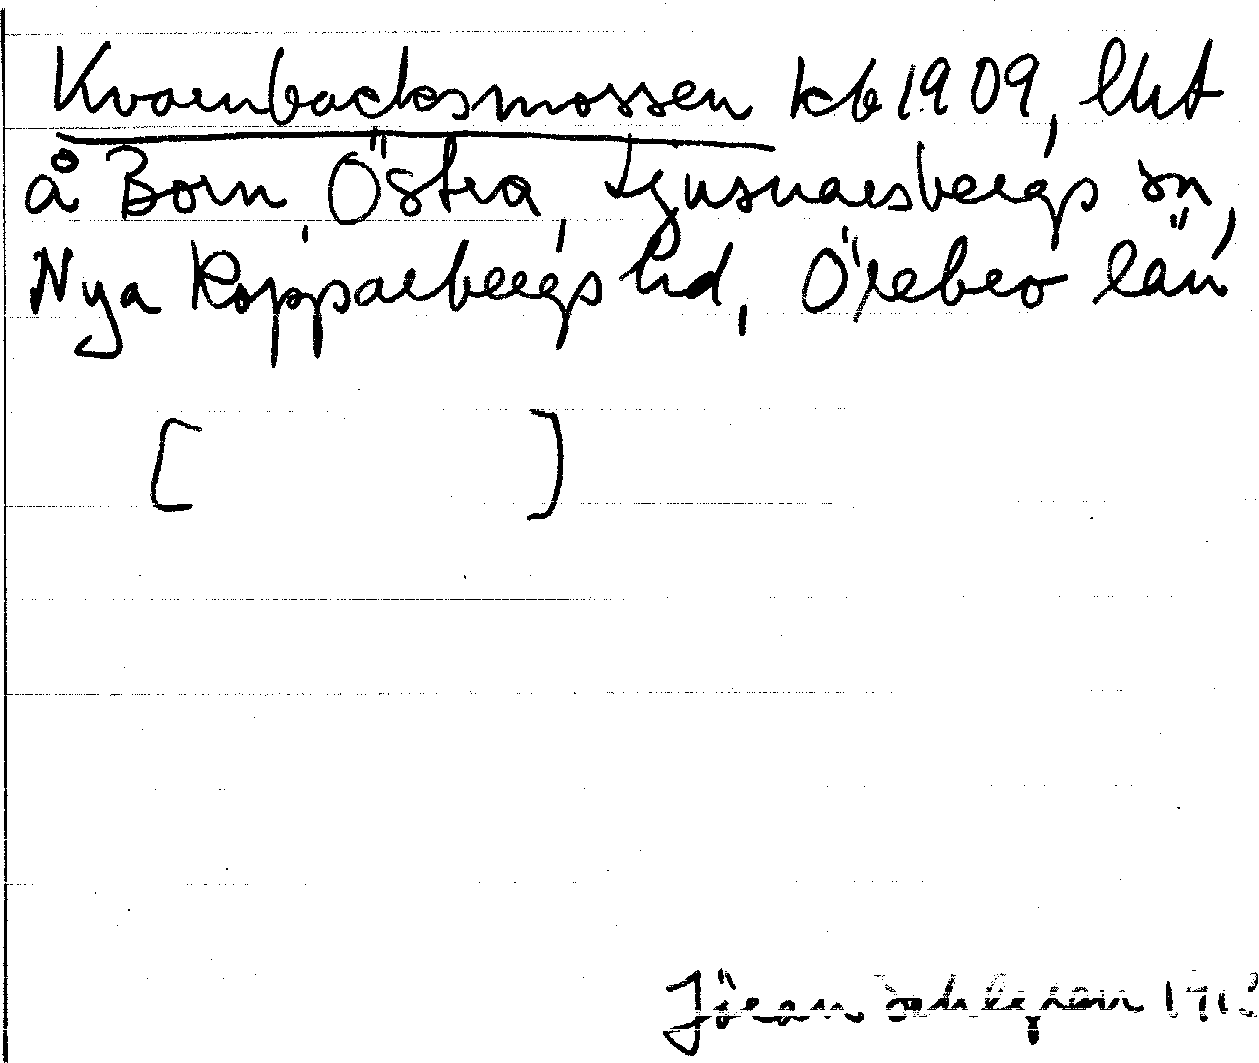 Kvarnbacksmossen kb 1909, likt
å Born, Östra, Ljusnarsbergs sn,
Nya Kopparbergs hd, Örebro län
[ ]
Jöran Sahlgren